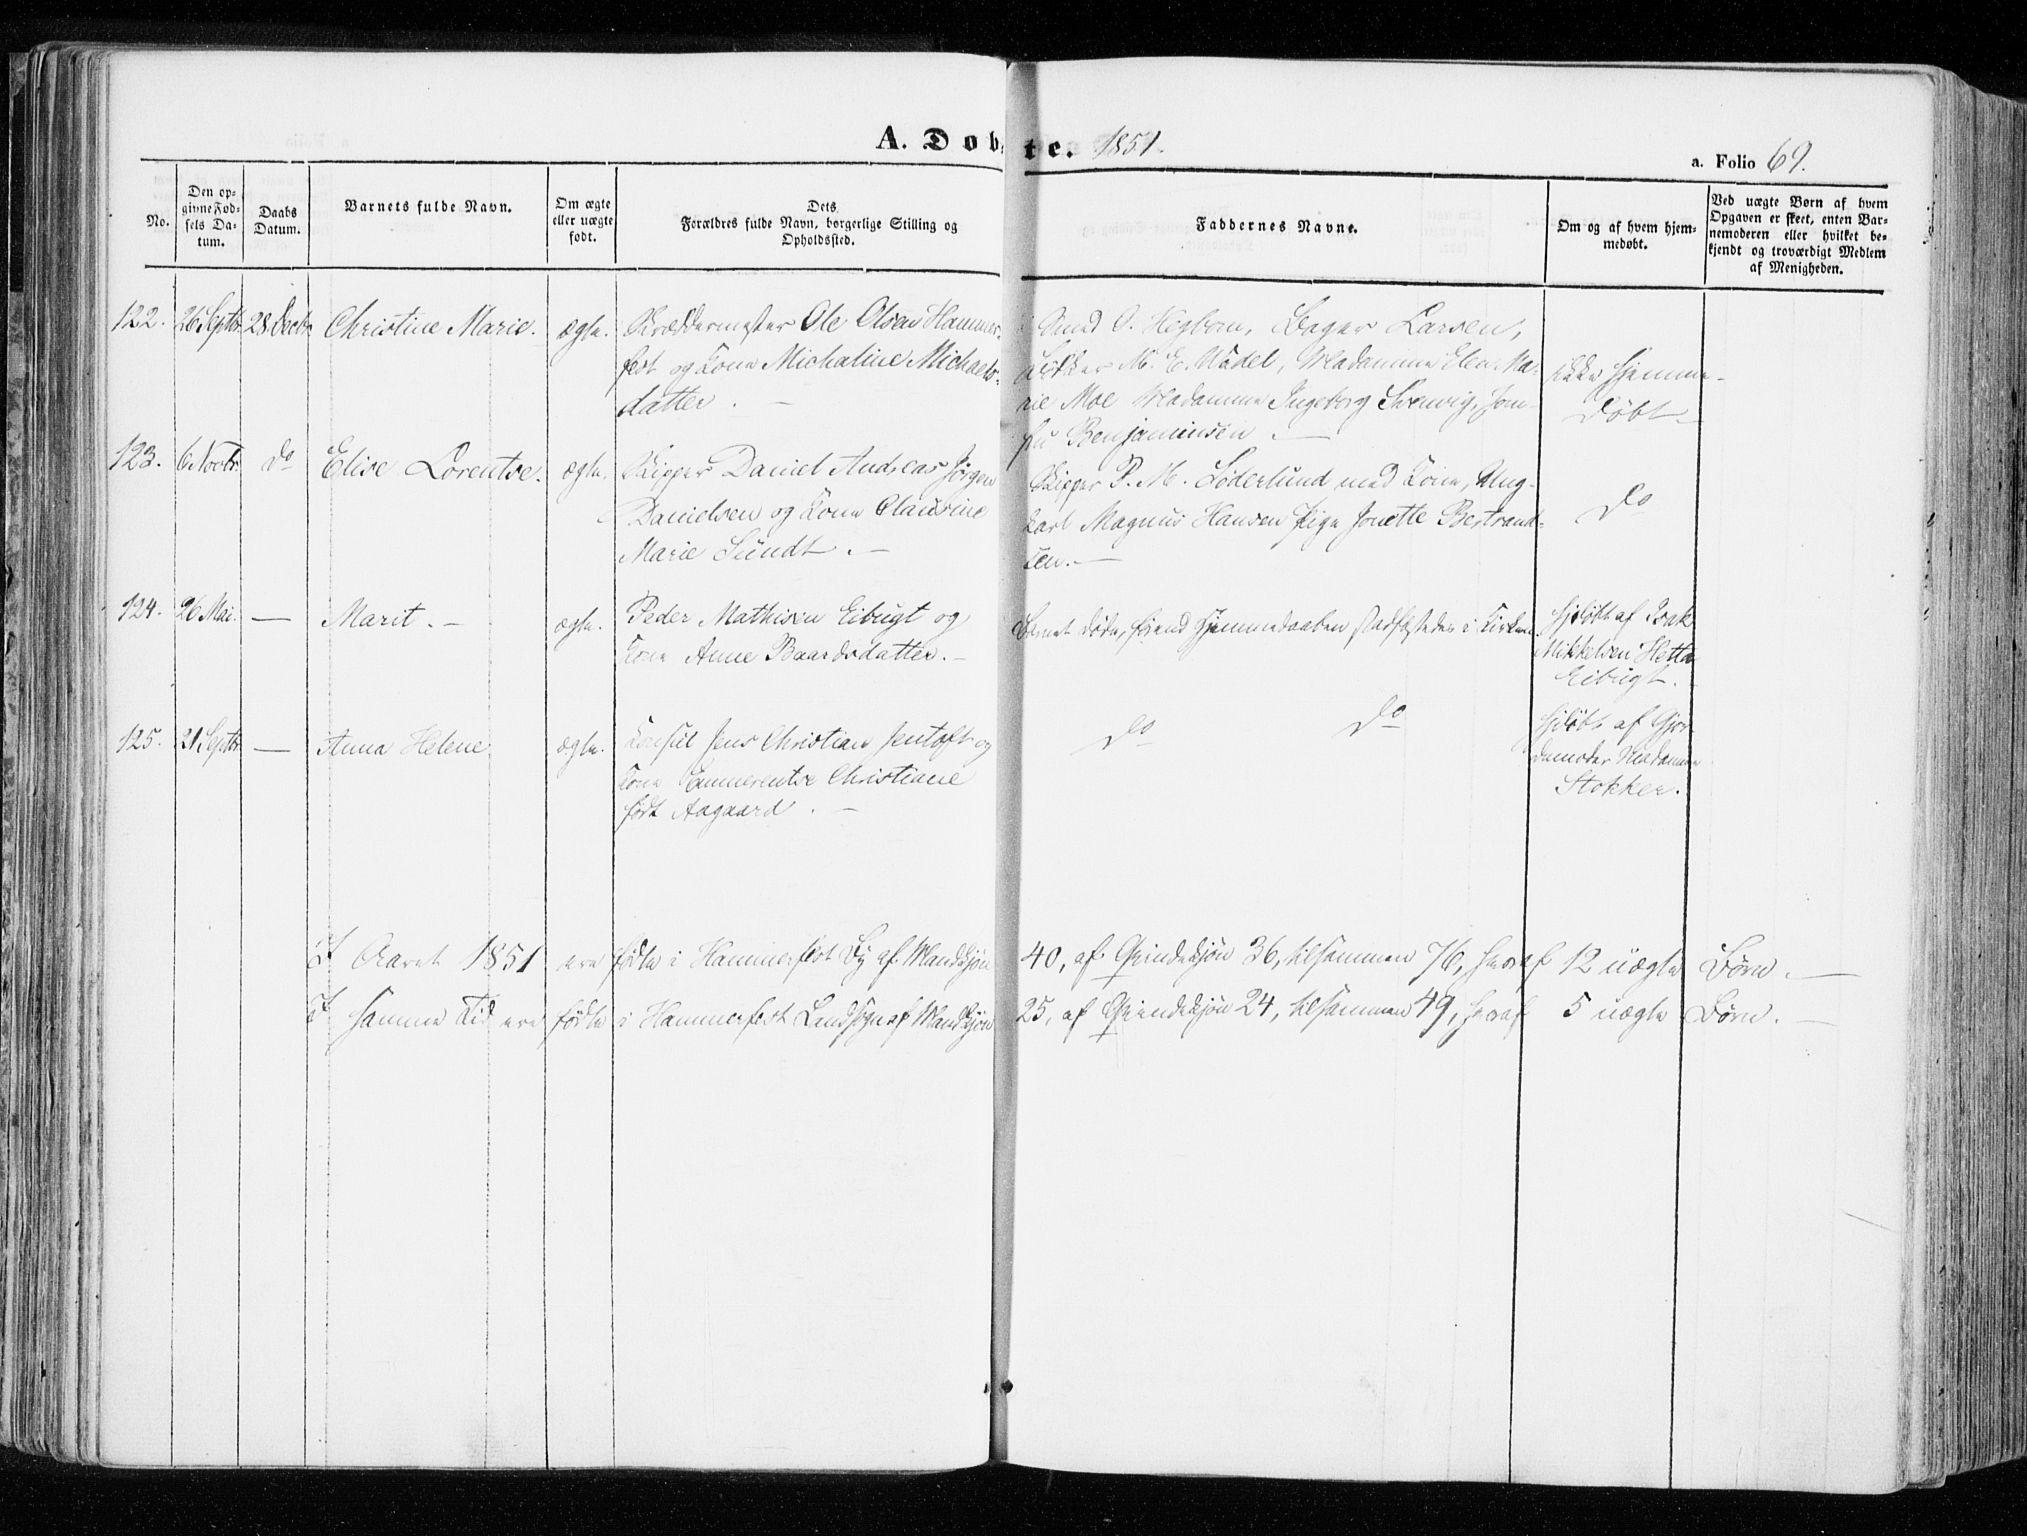 A. Døbte. 1851.
a. Folio 69.
No.
Den op-
givne Fød-
sels Da-
tum.
Daabs
Datum.
Barnets fulde Navn.
Om ægte
eller uægte
født.
Dets
Forældres fulde Navn, borgerlige Stilling og
Opholdssted.
Faddernes Navne.
Om og af hvem hjem-
medøbt.
Ved uægte Børn af hvem
Opgaven er skeet, enten Bar-
nemoderen eller hvilket be-
kjendt og troværdigt Medlem
af Menigheden.
122. 26 Septbr. 28 Decbr. Christine Marie. ægte.
Skræddermester Ole Olsen Hammer-
fest og Kone Michaline Michaels-
datter. —
Smed O. Hegbom, Bager Larsen,
M. E. Wadel, Madamme Elen Ma-
rie Moe Madamme Ingeborg Svenvig, Jom-
fru Benjaminsen. —
ikke hjemme-
døbt
123. 6 Novbr. do Elise Lorentse. ægte.
Skipper Daniel Andreas Jørgen
Danielsen og Kone Claurine
Marie Sundt. —
Skipper P. M. Søderlund med Kone, Ung-
karl Magnus Hansen Pige Jonette Bertrand-
sen. —
do
124. 26 Mai. — Marit. — ægte.
Peder Mathisen Eibugt og
Kone Anne Baardsdatter. —
Barnet døde, førend Hjemmedaaben stadfæstedes i Kirken.
Hjdøbt af Isak
Mikkelsen Hetta
Eibugt.
125. 21 Septbr. — Anna Helene ægte.
Konsul Jens Christian Jentoft og
Kone Emmerentse Christiane
født Aagaard. —
do do
Hjdøbt af Gjor-
demoder Madamme
Stokker.
I Aaret 1851 ere fødte i Hammerfest By af Mandkjøn 40, af Qvindekjøn 36, tilsammen 76, heraf 12 uægte Børn. —
I samme Tid ere fødte i Hammerfest Landsogn af Mandkjøn 25, af Qvindekjøn 24, tilsammen 49, heraf 5 uægte Børn. —